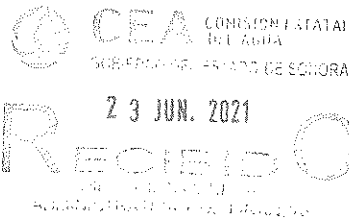 CEA COMISIÓN ESTATAL
DEL AGUA
GOBIERNO DEL ESTADO DE SONORA
23 JUN. 2021
RECIBIDO